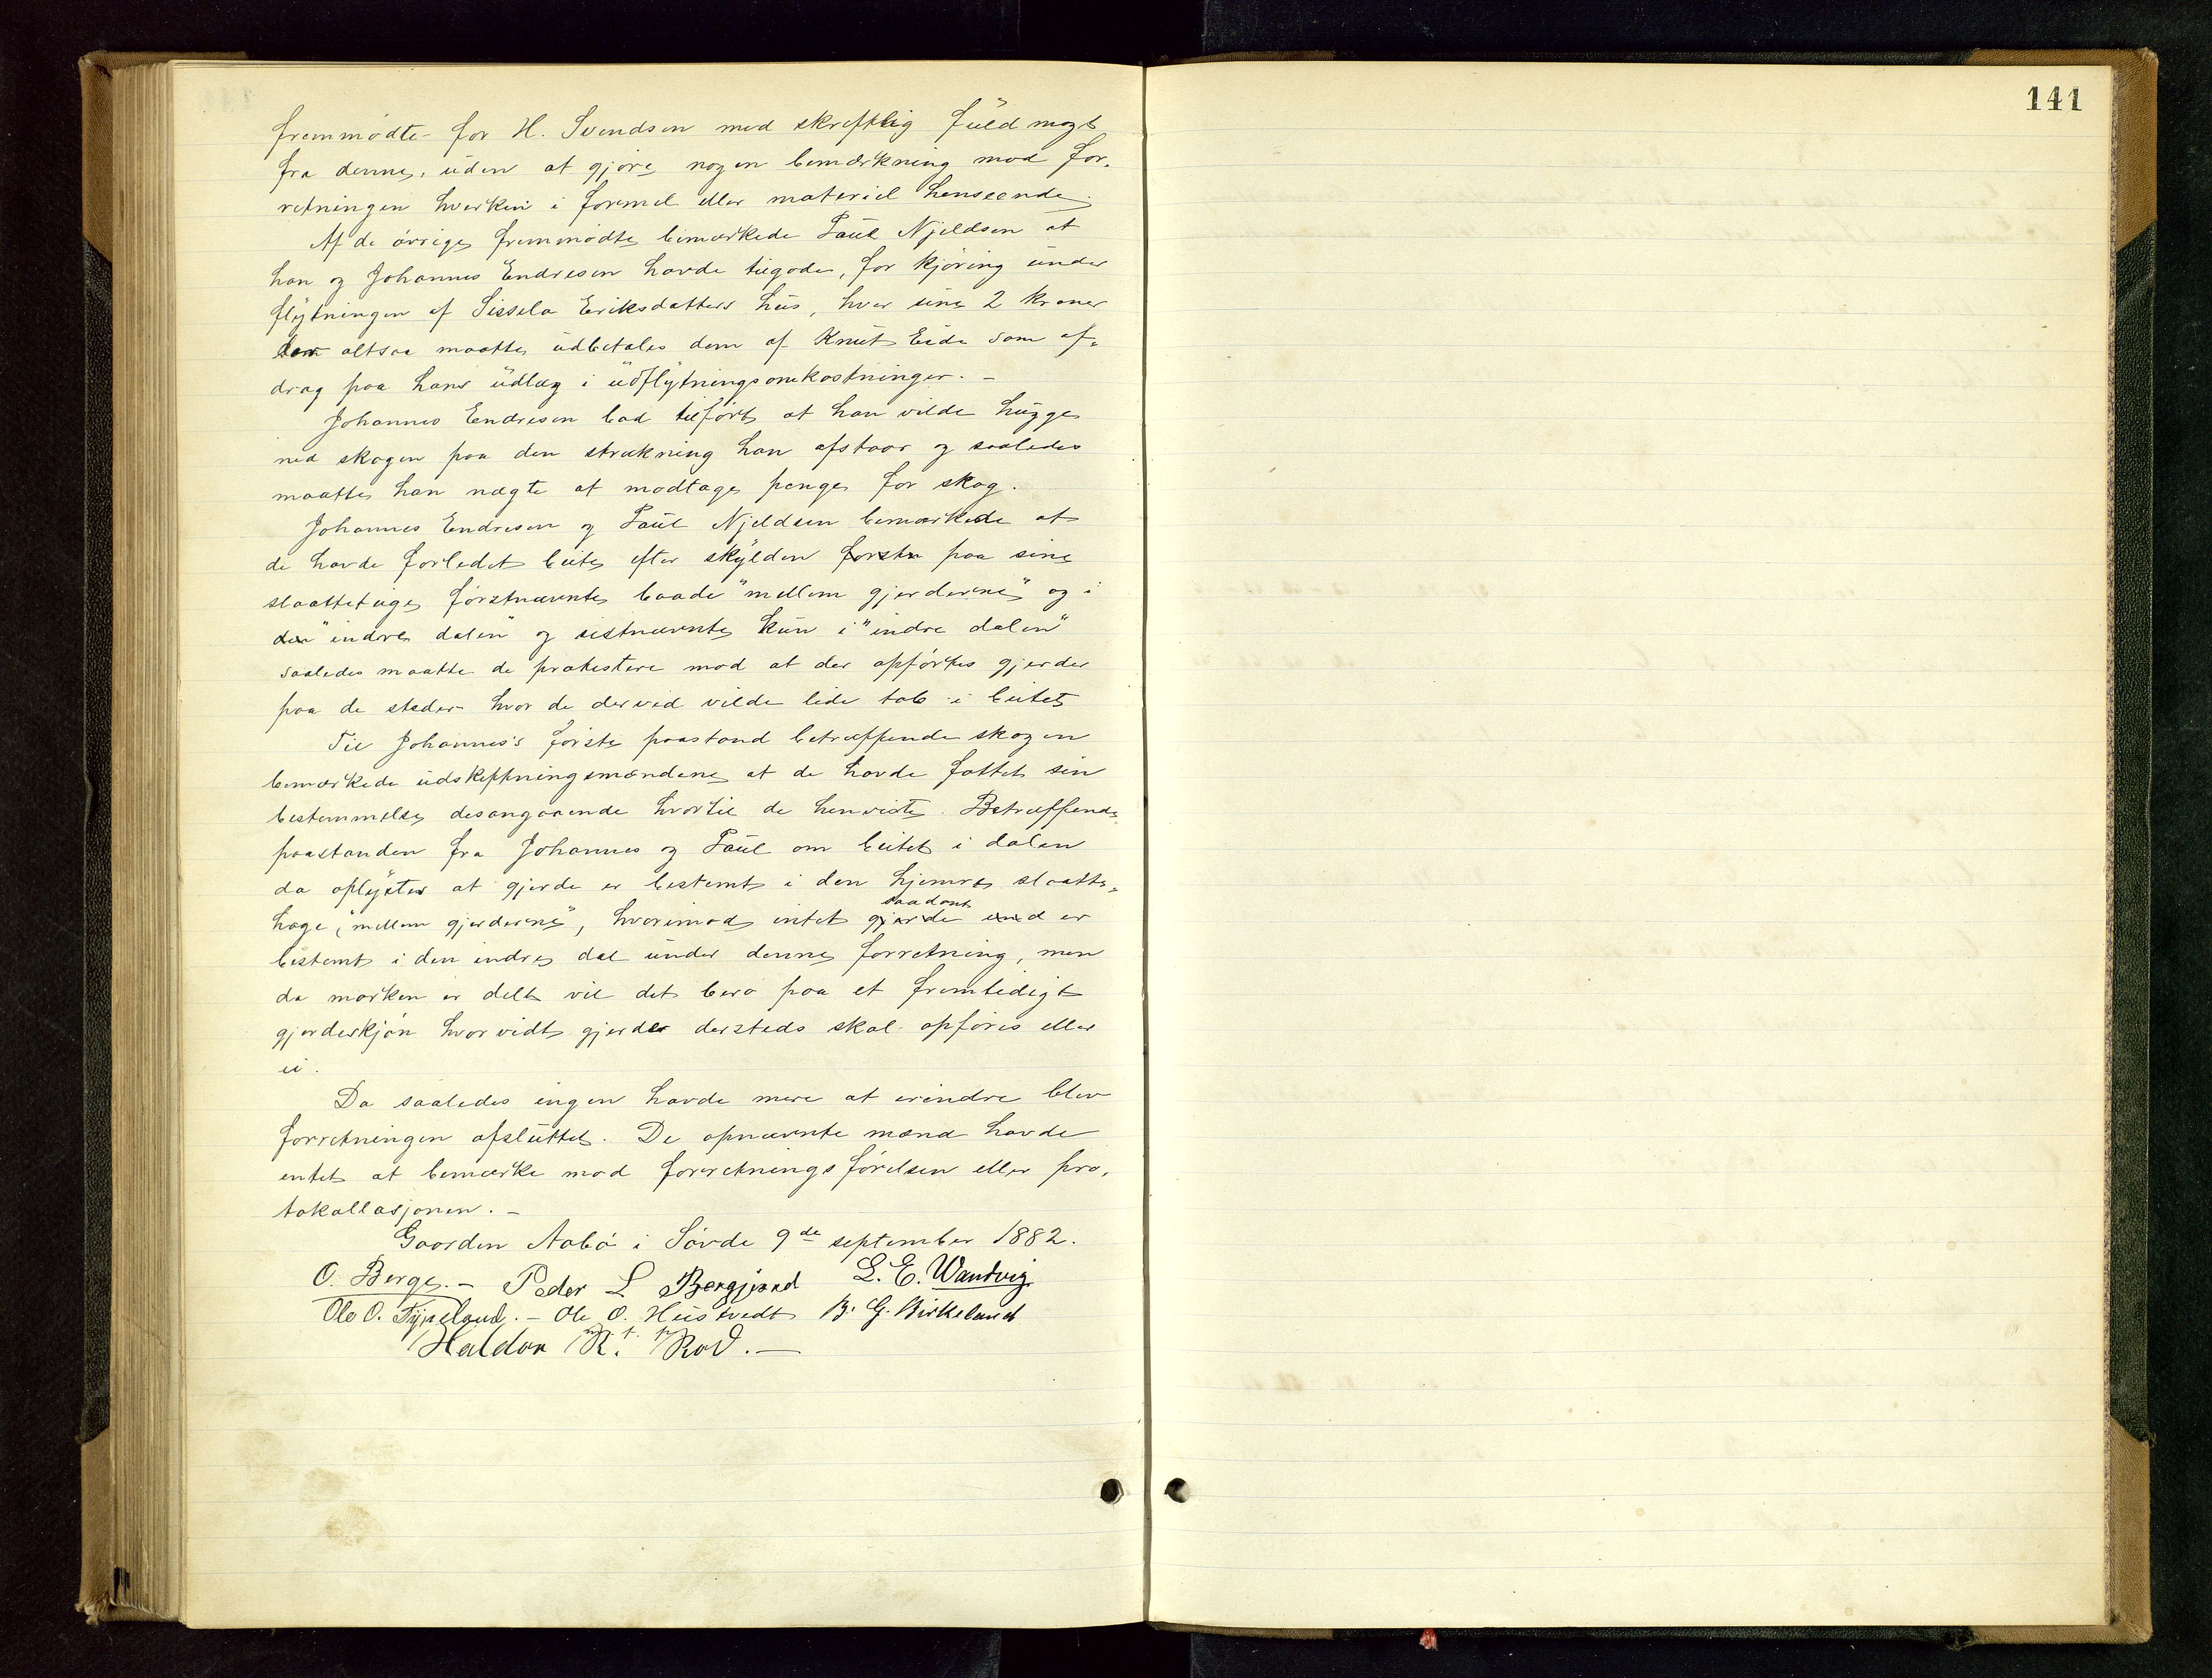 141
fremmødte for H. Svendsen med skreftlig fuldmagt
fra denne, uden at gjøre nogen bemærkning mod for-
retningen hverken i formel eller materiel henseende.
Af de øvrige fremmødte bemærkede Paul Njeldsen at
han og Johannes Endresen havde tilgode, for kjøring under
flytningen af Sissela Eriksdatters hus, hver sine 2 kroner
som altsaa maatte udbetales dem af Knut Eide som af-
drag paa hans udlæg i udflytningsomkostninger. –
Johannes Endresen bad tilført at han vilde hugge
ned skogen paa den strækning han afstaar og saaledes
maatte han nægte at modtage penge for skog.
Johannes Endresen og Paul Njeldsen bemærkede at
de havde forledet beite efter skylden første paa sine
slaatteteige førstnævnte baade "mellem gjerderne" og i
den "indre dalen" og sistnævnte kun i "indre dalen"
saaledes maatte de protestere mod at der opførtes gjerder
paa de steder hvor de derved vilde lide tab i beitet
Til Johannes's første paastand betræffende skogen
bemærkede udskiftningsmændene at de havde fattet sin
bestemmelse desangaaende hvortil de henviste. Betræffende
paastanden fra Johannes og Paul om beitet i dalen
da oplystes at gjerde er bestemt i den hjemre slaatte-
hage, "mellem gjerderne", hvorimod intet gjerde saadant end er
bestemt i den indre dal under denne forretning, men
da marken er delt vil det bero paa et fremtidigt
gjerdeskjøn hvorvidt gjerder dersteds skal opføres eller
ei.
Da saaledes ingen havde mere at erindre blev
forretningen afsluttet. De opnævnte mænd havde
intet at bemærke mod forretningsførelsen eller pro-
tokollasjonen. –
Gaarden Aabø i Søvde 9de september 1882.
O. Berge. – Peder L Bergjord L. E. Wandvig
Ole O. Tjyeland. – Ole O. Hustvedt B. G. Birkeland
Haldor R. Rød. – m. f. p.